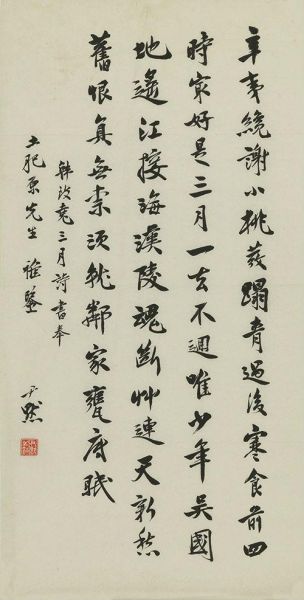 辛夷纔謝小桃發蹋青過後寒食前四
時冣好是三月一去不迴唯少年吳國
地遙江接海漢陵魂斷艸連天新愁
舊恨真無柰須就鄰家甕底眠
韓致堯三月詩書奉
土肥原先生雅鑒
尹默